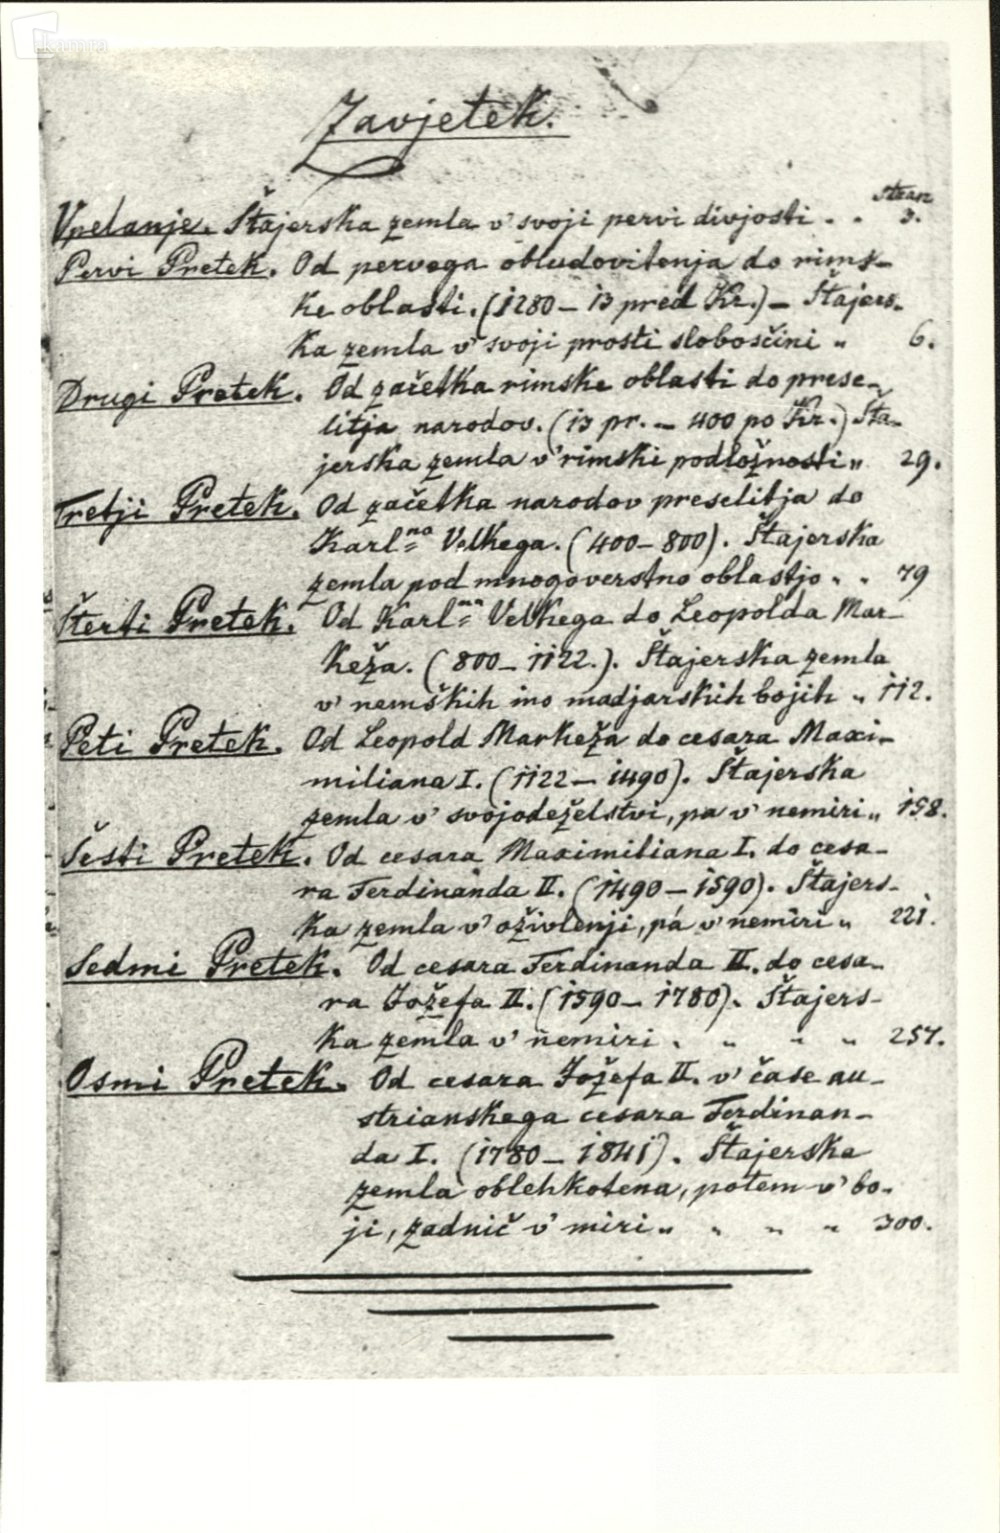 kamra
Zavjetek.
stran
Vpelanje. Štajerska zemla v' svoji pervi divjosti . . 3.
Pervi Pretek. Od pervega obludovitenja do rims-
ke oblasti. (1280 – 13 pred Kr.) – Štajers-
ka zemla v' svoji prosti slobosčini „ 6.
Drugi Pretek. Od začetka rimske oblasti do prese-
litja narodov. (13 pr. – 400 po Kr.) Šta-
jerska zemla v' rimski podložnosti „ 29.
Tretji Pretek. Od začetka narodov preselitja do
Karl=na Velkega. (400–800). Štajerska
zemla pod mnogoverstno oblastjo „ „ 79
Šterti Pretek. Od Karl=na Velkega do Leopolda Mar-
keža. (800–1122.). Štajerska zemla
v' nemških ino madjarskih bojih „ 112.
Peti Pretek. Od Leopold Markeža do cesara Maxi-
miliana I. (1122–1490). Štajerska
zemla v' svojodeželstvi, pa v' nemiri „ 158.
Šesti Pretek. Od cesara Maximiliana I. do cesa-
ra Ferdinanda II. (1490–1590). Štajers-
ka zemla v' oživlenji, pa v' nemiri „ 221.
Sedmi Pretek. Od cesara Ferdinanda II. do cesa-
ra Jožefa II. (1590–1780). Štajers-
ka zemla v' nemiri . „ „ „ 257.
Osmi Pretek. Od cesara Jožefa II. v' čase au-
strianskega cesara Ferdinan-
da I. (1780–1841). Štajerska
zemla oblehkotena, potem v' bo-
ji, zadnič v' miri „ „ „ „ 300.